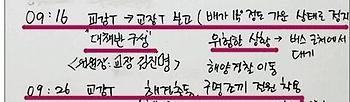 09:16 교감T → 교장T 보고 (배가 15° 정도 기운 상태로 정지
"대책반 구성" 위험한 상황 → 버스 근처에서 대기
<위원장: 교장 김진명> 해양경찰 이동
09:26 교감T 해경출동, 구명조끼 전원 착용